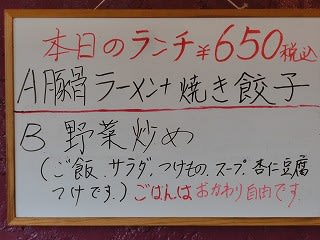 本日のランチ¥650税込
A 豚骨ラーメン+焼き餃子
B 野菜炒め
(ご飯、サラダ、つけもの、スープ、杏仁豆腐
つけです。)ごはんはおかわり自由です。